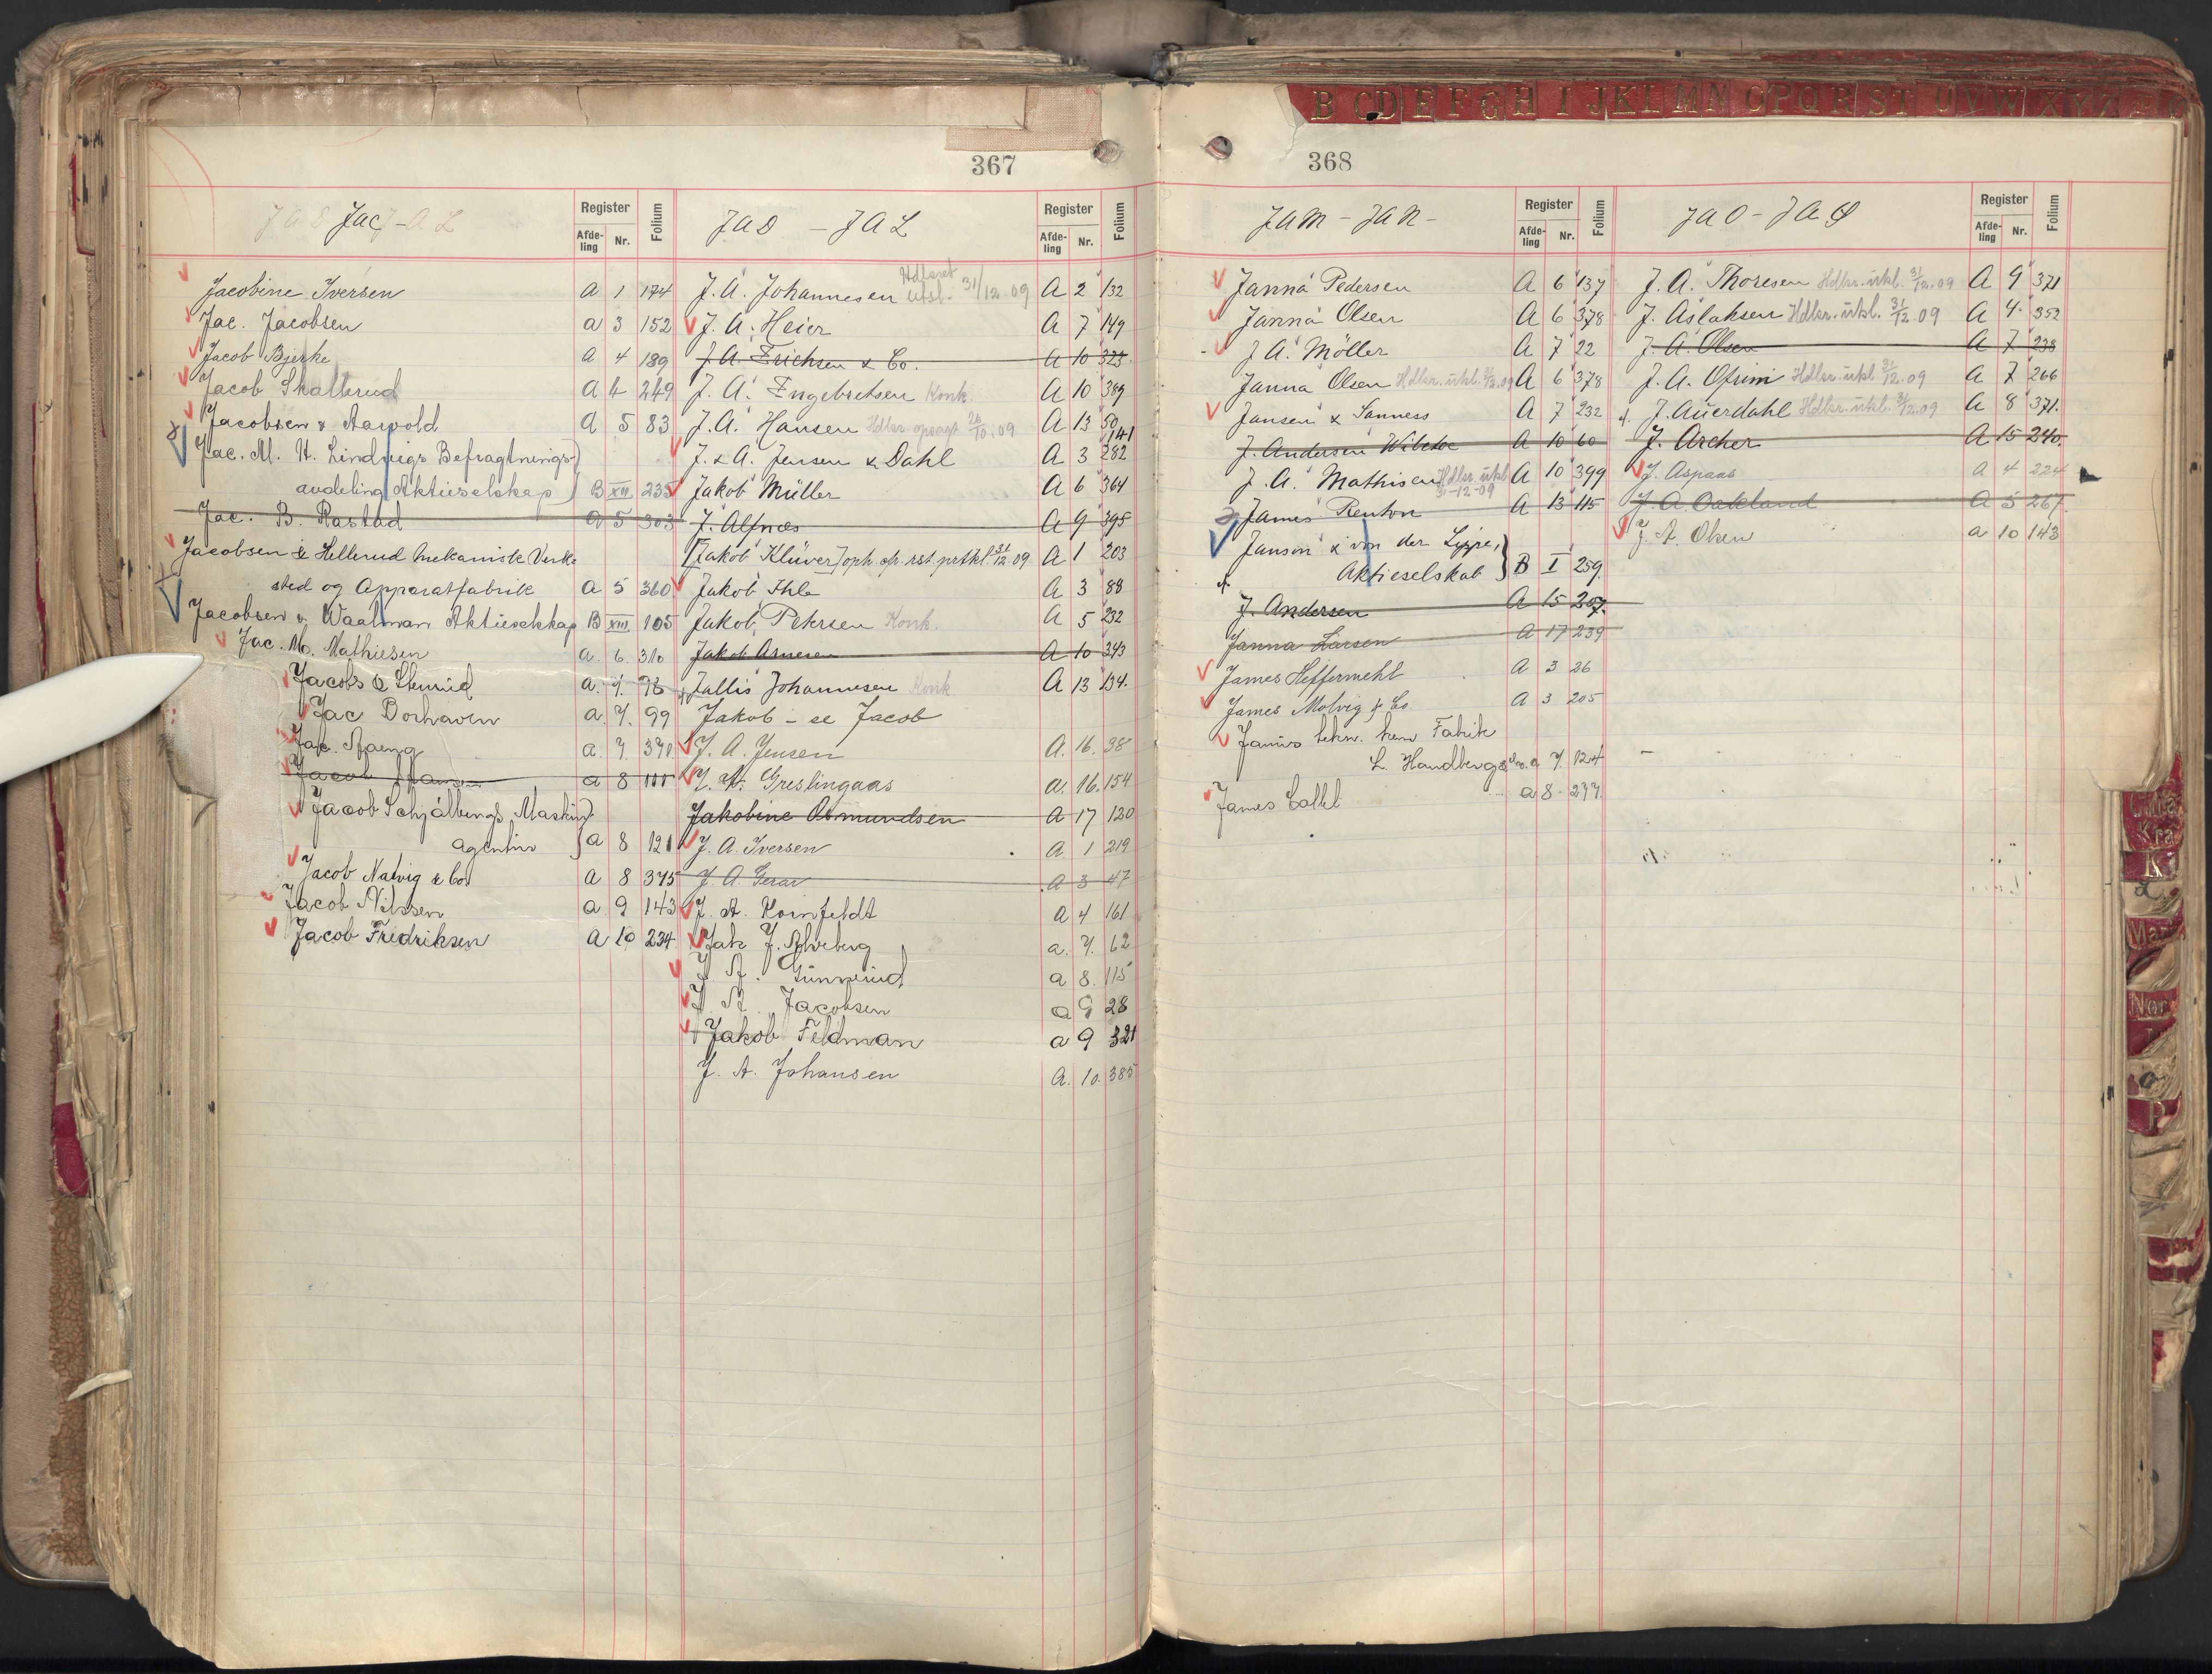 B C D E F G H I J K L M N O P Q R S T U V W X Y Z
367
Jac
Register
Afde-ling Nr. Folium
Jacobine Iversen A 1 174
Jac. Jacobsen A 3 152
Jacob Bjerke A 4 189
Jacob Skallerud A 4 249
Jacobsen & Aarvold A 5 83
Jac. M. H. Lindvigs Befragtnings-
avdeling Aktieselskap B XII 235
Jac. B. Rastad A 5 303
Jacobsen & Hellerud Mekaniske Verk-
sted og Apparatfabrik A 5 360
Jacobsen & Waalman Aktieselskap B XIII 105
Jac. M. Mathiesen A. 6. 310
Jacobs & Stenrud A. 7. 76
Jac Dorhaven A. 7. 99
Jac. Spaeng A. 7. 370
Jacob Hansen A 8 100
Jacob Schjälbergs Maskin
agentur A 8 121
Jacob Natvig & Co. A 8 375
Jacob Nilssen A 9 143
Jacob Fredriksen A 10 234
JAD - JAL
Register
Afde-ling Nr. Folium
J. A. Johannesen Hdlsret utsl. 31/12.09 A 2 132
J. A. Heier A 7 149
J. A. Erichsen & Co. A 10 323
J. A. Engebretsen Konk. A 10 389
J. A. Hansen Hdlsr. opsagt 26/10.09 A 13 50
141
J. & A. Jensen & Dahl A 3 282
Jakob Müller A 6 364
J. Alfnæs A 9 395
[Jakob Klüver] oph. ep. rst. prtkl. 31/12.09 A 1 203
Jakob Ihle A 3 88
Jakob Petersen Konk. A 5 232
Jakob Arnesen A 10 343
Jallis Johannesen Konk A 13 134.
Jakob - se Jacob
J. A. Jensen A. 16. 38
J. A. Greslingaas A. 16. 154
Jakobine Asmundsen A 17 120
J. A. Iversen A. 1 219
J. A. Gerar A 3 47
J. A. Kornfeldt A 4 161
Jak J. Alveberg A. 7. 62
J. A. Gunnerud A 8. 115
J. A. Jacobsen A 9 28
Jakob Feldman A 9 321
J. A. Johansen A. 10. 385
368
JAM - JAN -
Register
Afde-ling Nr. Folium
Janna Pedersen A 6 137
Janna Olsen A 6 378
J A. Möller A 7 22
Janna Olsen Hdlsr. utsl. 31/12.09 A 6 378
Jansen & Sanness A 7 232
J. Andersen Wibetoe A 10 60
J. A. Mathisen Hdlsr utsl A 10 399
31-12-09
James Renton A 13 115
Janson & von der Lippe,
Aktieselskab B I 259.
J. Andersen A 15 207.
Janna Larsen A 17 239
James Heffermehl A 3 26
James Molvig & Co. A 3 205
Janus tekn. kem Fabrik
L. Handberg A 7. 124
James Collet A 8 277.
JAO - JAØ
Register
Afde-ling Nr. Folium
J. A. Thoresen Hdlsr. utsl. 31/12.09 A 9 371
J. Aslaksen Hdlsr. utsl. 31/12.09 A 4. 352
J. A. Olsen A 7 238
J. A. Ofrim Hdlsr. utsl 31/12.09 A 7 266
J. Auerdahl Hdlsr. utsl. 31/12.09 A 8 371.
J. Archer A 15 240.
J. Aspaas A 4 224
J. A. Oakland A 5 267.
J. A. Olsen A 10 143
Kra
K
Nor
P